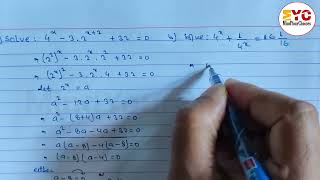 Solve: 4^x - 3.2^{x+2} + 32 = 0
" (2²)^x - 3.2^x.2² + 32 = 0
" (2^x)² - 3.2^x.4 + 32 = 0
let 2^x = a
a² - 12a + 32 = 0
" a² - (8+4)a + 32 = 0
" a² - 8a - 4a + 32 = 0
" a(a-8) - 4(a-8) = 0
" (a-8)(a-4) = 0
either
a - 8 = 0
b) Solve: 4^x + 1/4^x = 16 1/16
"
ZYC